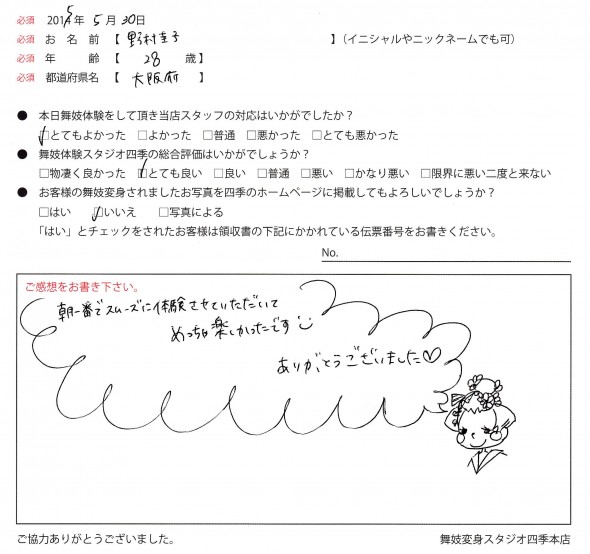 必須 2015年 5月 30日
必須 お名前【 野村圭子 】(イニシャルやニックネームでも可)
必須 年齢【 28 歳】
必須 都道府県名【 大阪府 】
● 本日舞妓体験をして頂き当店スタッフの対応はいかがでしたか?
□とてもよかった □よかった □普通 □悪かった □とても悪かった
● 舞妓体験スタジオ四季の総合評価はいかがでしょうか?
□物凄く良かった □とても良い □良い □普通 □悪い □かなり悪い □限界に悪い二度と来ない
● お客様の舞妓変身されましたお写真を四季のホームページに掲載してもよろしいでしょうか?
□はい □いいえ □写真による
「はい」とチェックをされたお客様は領収書の下記にかかれている伝票番号をお書きください。
No.
ご感想をお書き下さい。
朝一番でスムーズに体験させていただいて
めっちゃ楽しかったです
ありがとうございました♡
ご協力ありがとうございました。
舞妓変身スタジオ四季本店